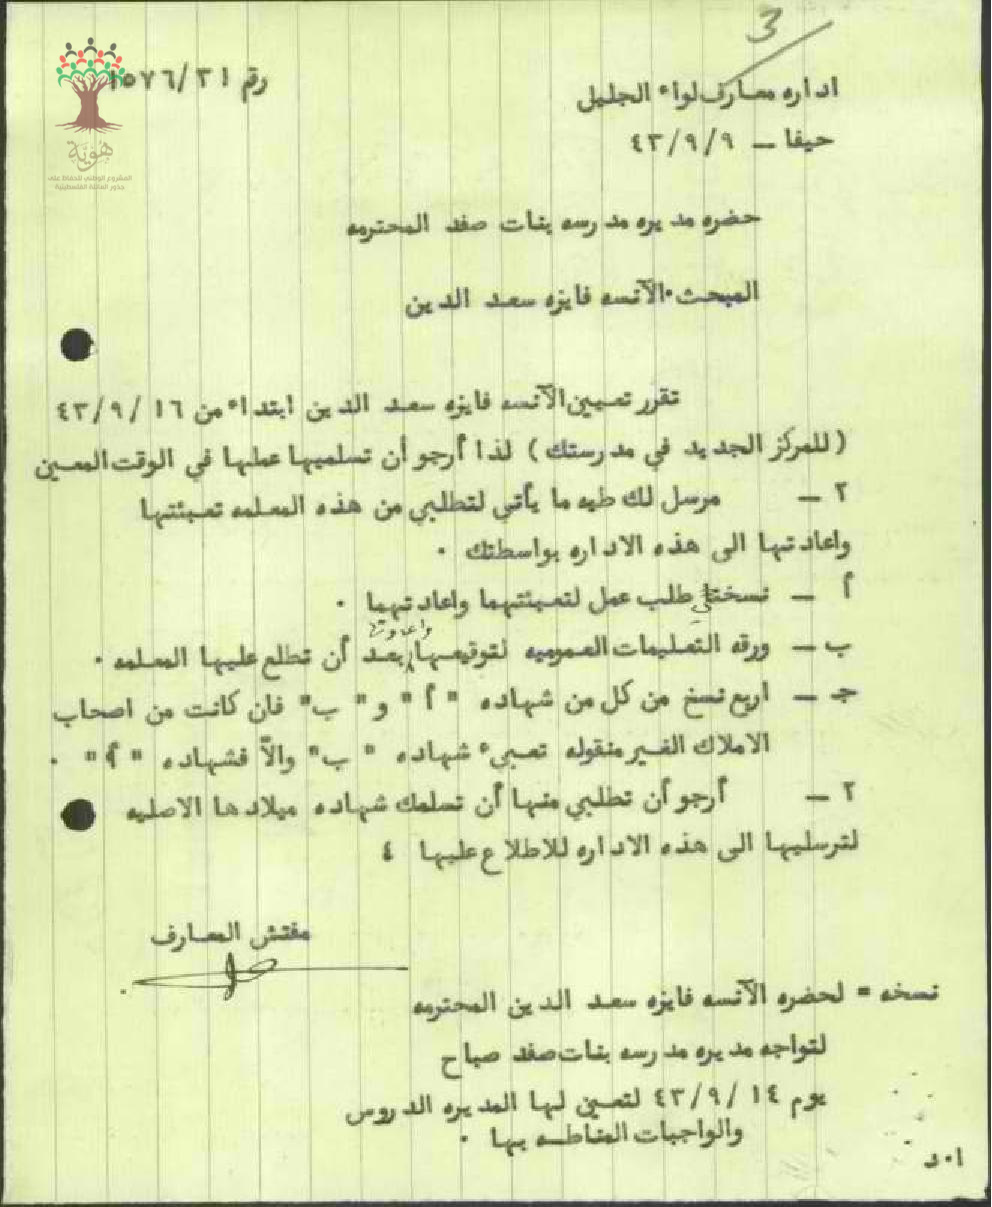 3
رقم ١٥٧٦/٣١
اداره معارف لواء الجليل
حيفا ــ ٤٣/٩/٩
هُوِيَّة
المشروع الوطني للحفاظ على
جذور العائلة الفلسطينية
حضره مديره مدرسه بنات صفد المحترمه
المبحث٠الآنسه فايزه سعد الدين
تقرر تعيين الآنسه فايزه سعد الدين ابتداء من ٤٣/٩/١٦
( للمركز الجديد في مدرستك ) لذا أرجو أن تسلميها عملها في الوقت المعين
٢ ــ مرسل لك طيه ما يأتي لتطلبي من هذه المعلمه تعبئتها
واعادتها الى هذه الاداره بواسطتك ٠
أ ــ نسختي طلب عمل لتعبئتهما واعادتهما ٠
ب ــ ورقه التعليمات العموميه لتوقيعها واعادتها بعد أن تطلع عليها المعلمه ٠
جـ ــ اربع نسخ من كل من شهاده " أ " و " ب" فان كانت من اصحاب
الاملاك الغير منقوله تعبيء شهاده " ب" والاّ فشهاده " أ " ٠
٢ ــ أرجو أن تطلبي منها أن تسلمك شهاده ميلادها الاصليه
لترسليها الى هذه الاداره للاطلاع عليها ٤
مفتش المعارف
نسخه = لحضره الآنسه فايزه سعد الدين المحترمه
لتواجه مديره مدرسه بنات صفد صباح
يوم ٤٣/٩/١٤ لتعين لها المديره الدروس
والواجبات المناطه بها ٠
ا٠د